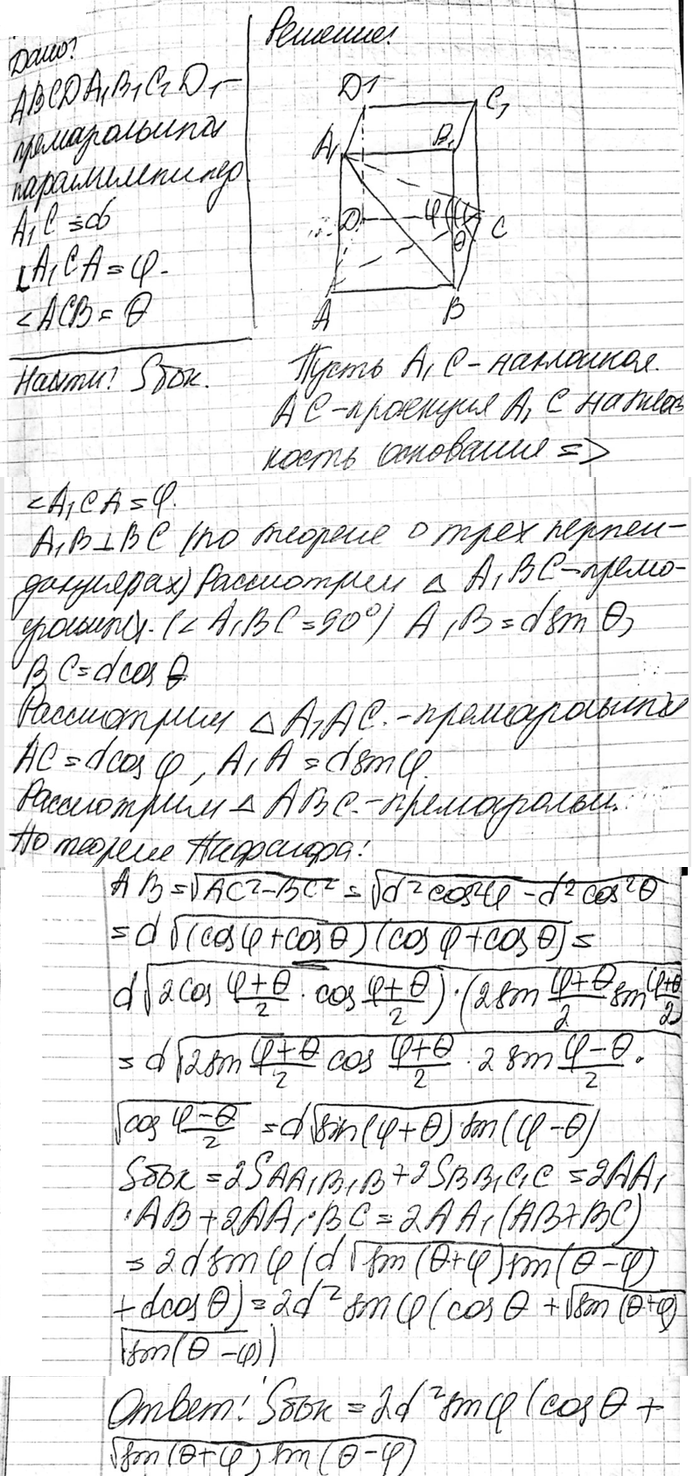 Дано:
ABCDA₁B₁C₁D₁ –
прямоугольный
параллелепипед
A₁C = d
∠A₁CA = φ.
∠ACB = θ
Найти: Sбок.
Решение:
D1
C₁
A₁
B₁
D
φ
C
θ
A
B
Пусть A₁C – наклонная.
AC – проекция A₁C на плос
кость основания =>
∠A₁CA = φ.
A₁B ⊥ BC (по теореме о трех перпен-
дикулярах) Рассмотрим △ A₁BC – прямо-
угольный. (∠A₁BC = 90°) A₁B = d sin θ,
BC = d cos θ
Рассмотрим △ A₁AC. – прямоугольный
AC = d cos φ, A₁A = d sin φ.
Рассмотрим △ ABC. – прямоугольн.
По теореме Пифагора:
AB = √(AC² – BC²) = √(d² cos²φ – d² cos²θ)
= d √((cos φ + cos θ)(cos φ + cos θ)) =
d √(2cos (φ+θ)/2 · cos (φ+θ)/2) · (2 sin (φ+θ)/2 sin (φ+θ)/2)
= d √(2 sin (φ+θ)/2 cos (φ+θ)/2 · 2 sin (φ–θ)/2 ·
√(cos (φ–θ)/2) = d √(sin(φ+θ) sin(φ–θ))
Sбок = 2SAA₁B₁B + 2SBB₁C₁C = 2AA₁
· AB + 2AA₁ · BC = 2AA₁(AB + BC)
= 2d sin φ (d √(sin(θ+φ) sin(θ–φ))
+ d cos θ) = 2d² sin φ (cos θ + √(sin(θ+φ)
√(sin(θ–φ))
Ответ: Sбок = 2d² sin φ (cos θ +
√(sin(θ+φ) sin(θ–φ))